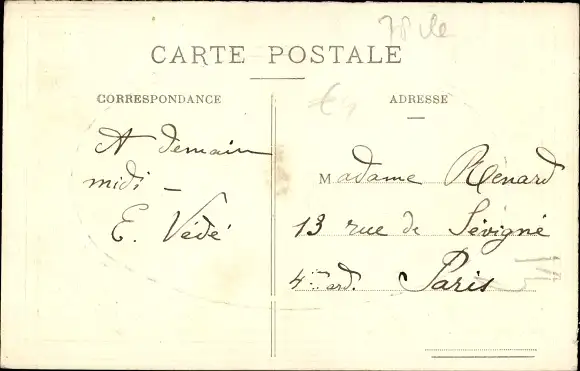 CARTE POSTALE
CORRESPONDANCE
A demain
midi –
E. Védé
ADRESSE
Madame Rénard
13 rue de Sévigné
4me ard. Paris